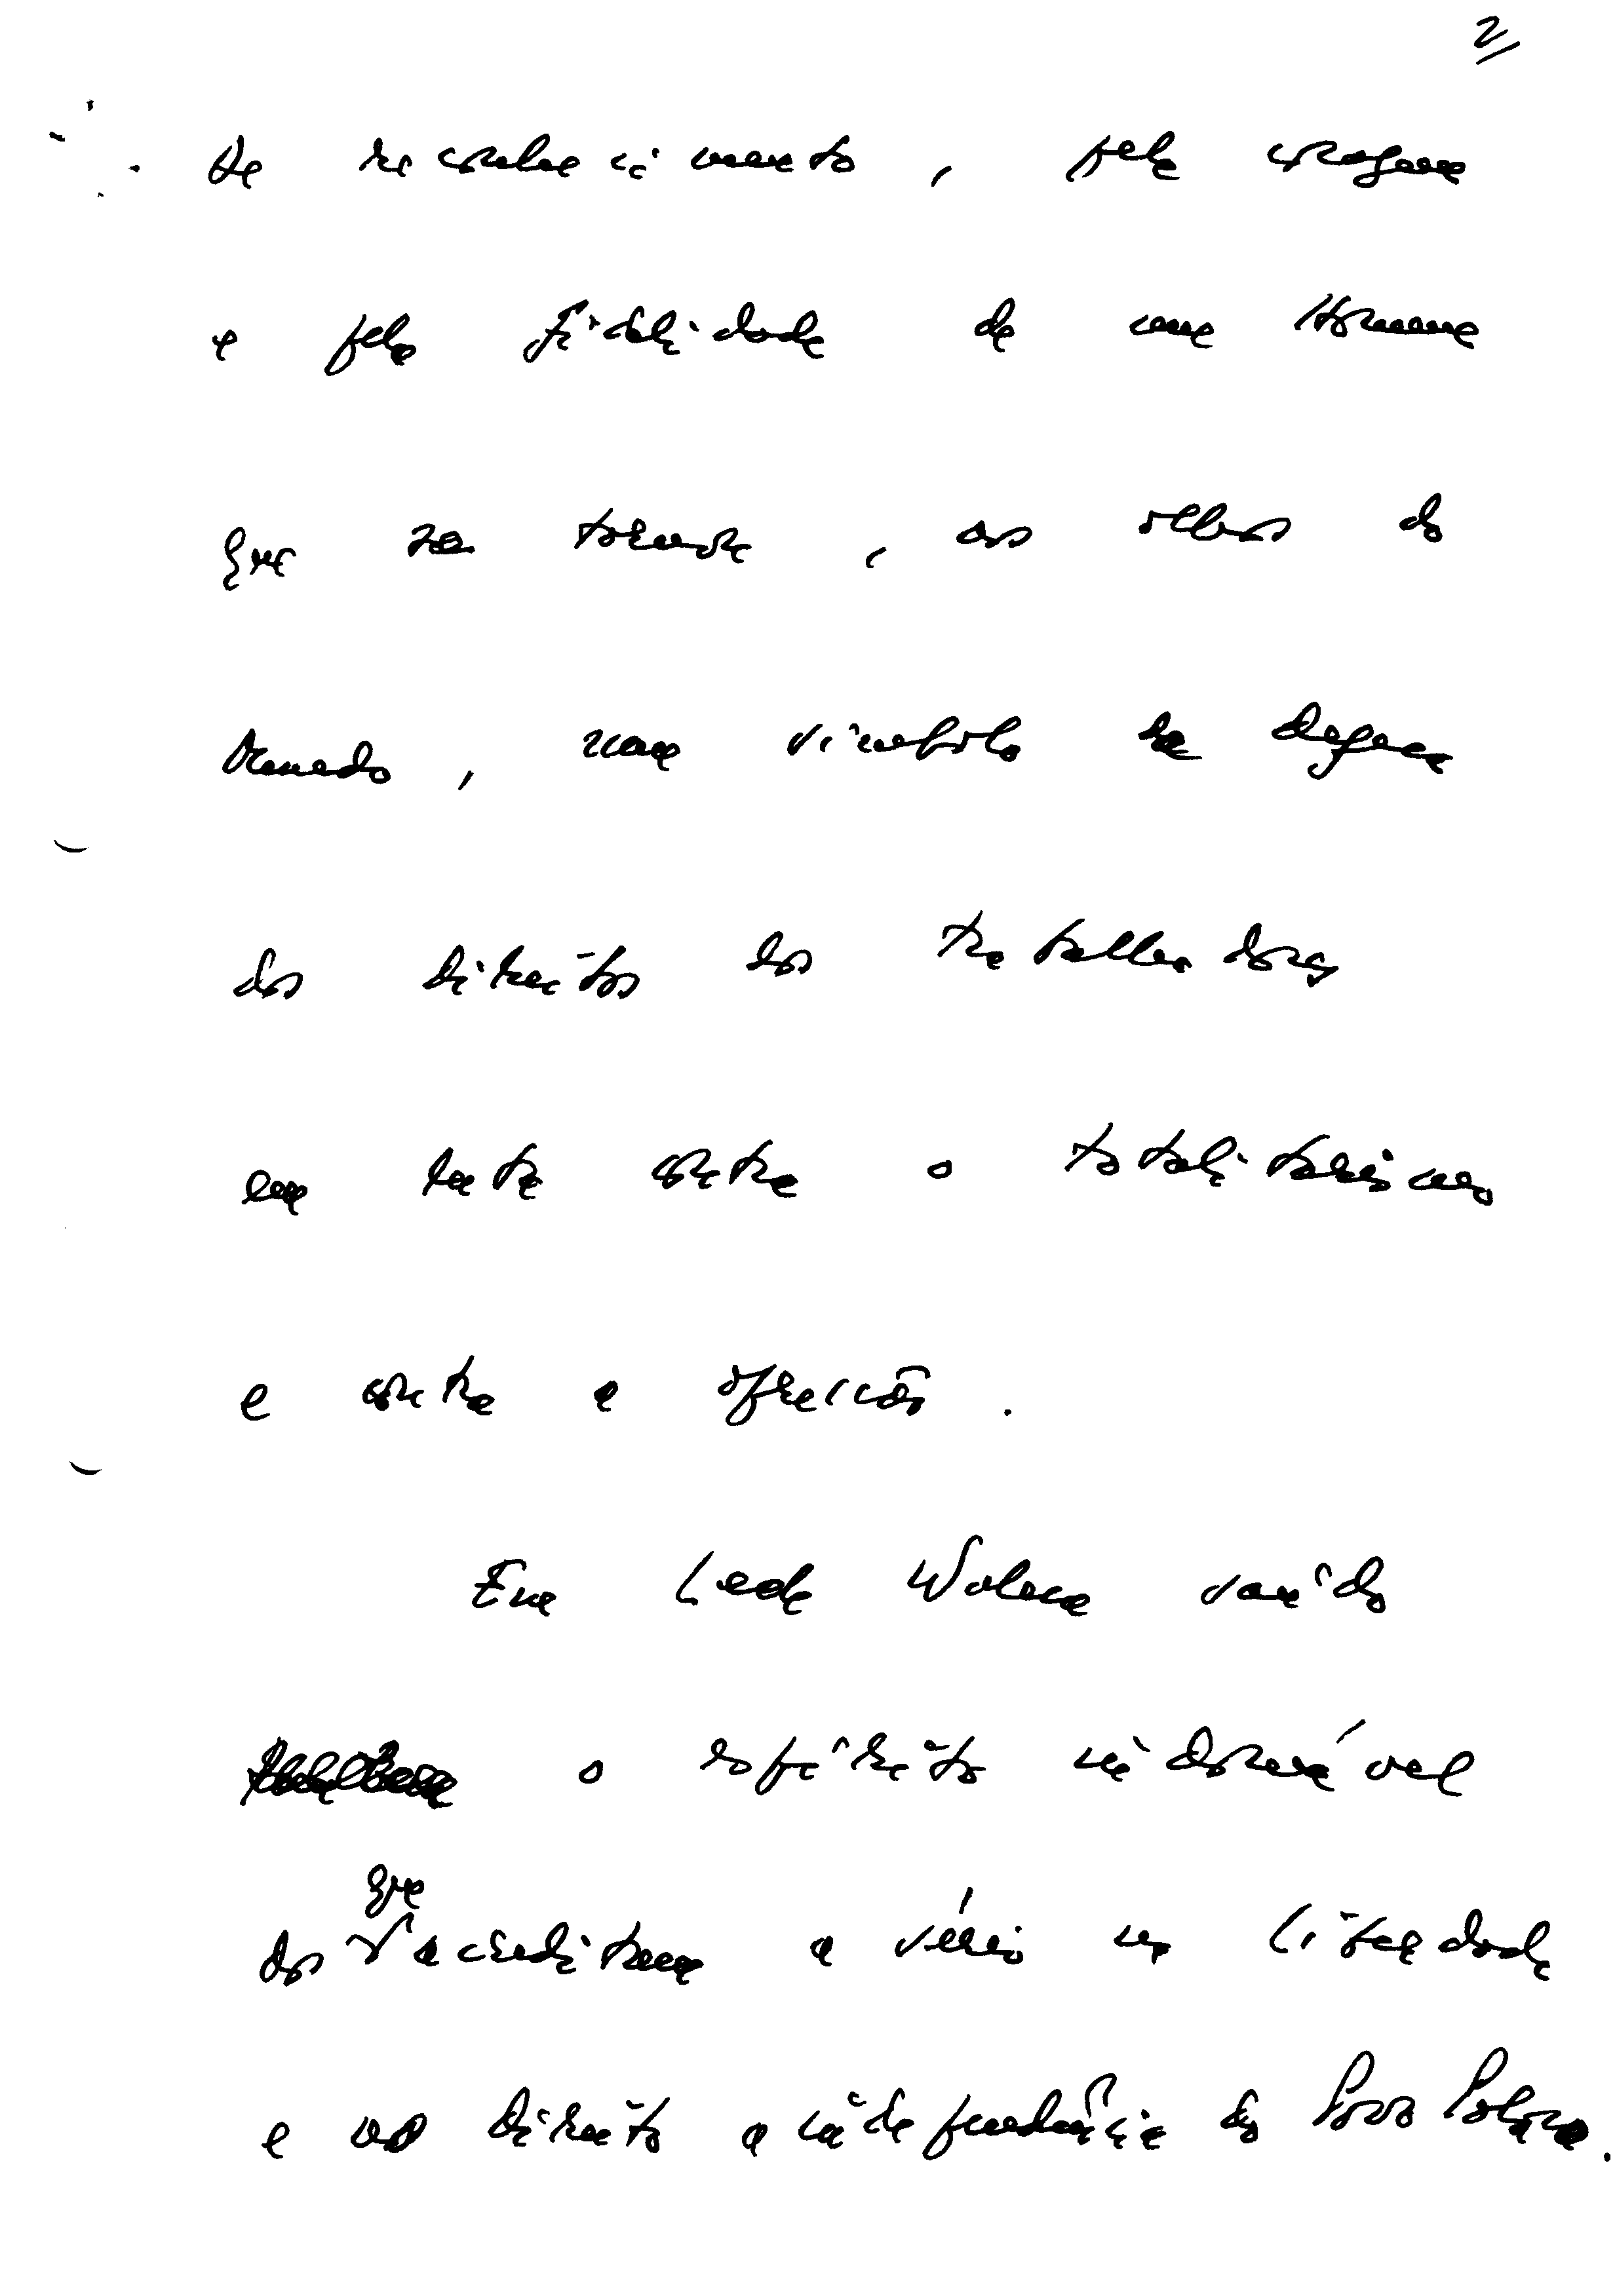 2
de reconhecimento, pela coragem
e pela fidelidade de um Homem
que se tornou, aos olhos do
Mundo, num símbolo da defesa
dos direitos dos trabalhadores
em luta contra o totalitarismo
e contra a opressão.
Em Lech Walesa saúdo
o espírito indomável
dos que acreditam a sério na liberdade
e no direito à independência do Povo Polaco.